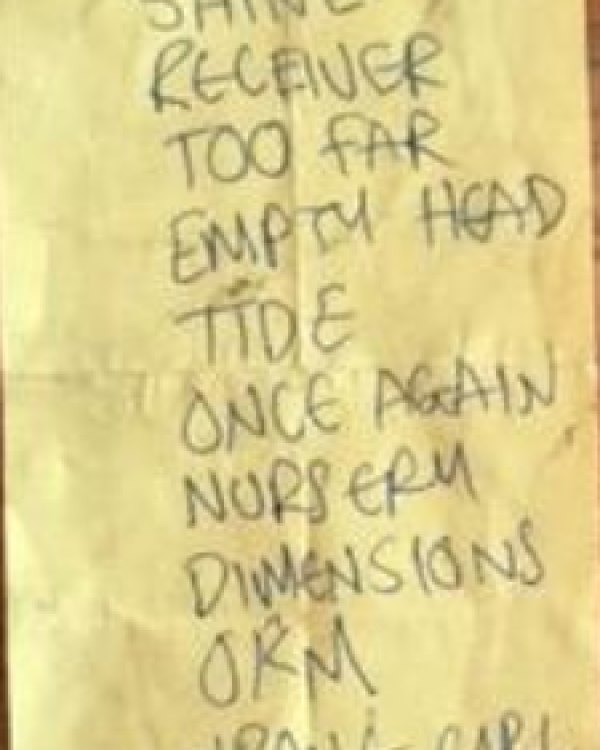 SHINE
RECEIVER
TOO FAR
EMPTY HEAD
TIDE
ONCE AGAIN
NURSERY
DIMENSIONS
OKM